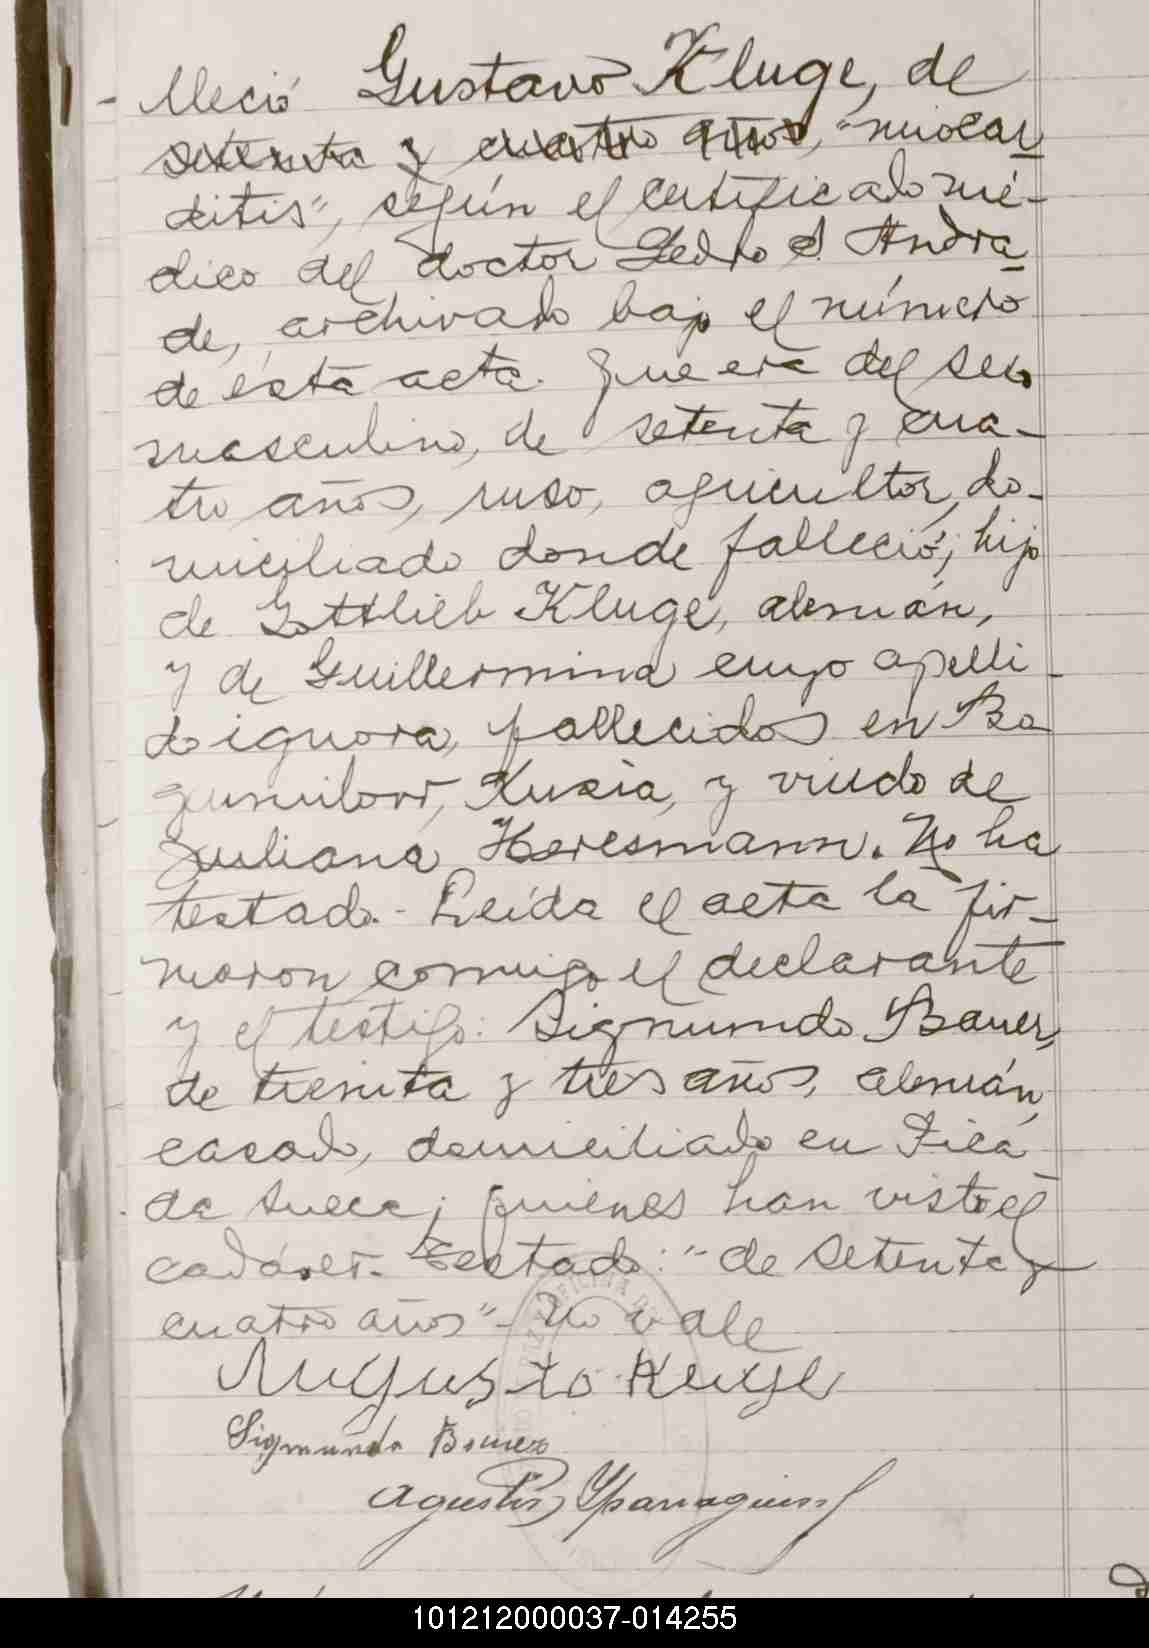 lleció Gustavo Kluge, de
setenta y cuatro años, "miocar
ditis", según el certificado mé-
dico del doctor Pedro S. Andra
de, archivado bajo el número
de esta acta. Que era del sexo
masculino, de setenta y cua-
tro años, ruso, agricultor, do-
miciliado donde falleció; hijo
de Gottlieb Kluge, alemán,
y de Guillermina cuyo apelli
do ignora, fallecidos en Ba
Rusia, y viudo de
Juliana Heresmann. No ha
testado.- Leída el acta la fir-
maron conmigo el declarante
y el testigo: Sigmundo Bauer,
de treinta y tres años, alemán,
casado, domiciliado en Picá
da Sueca; quienes han visto el
cadáver.- Testado: "de setenta y
cuatro años"- No vale
Augusto Kluge
Sigmundo Bauer
Agustín Yparraguirre
101212000037-014255